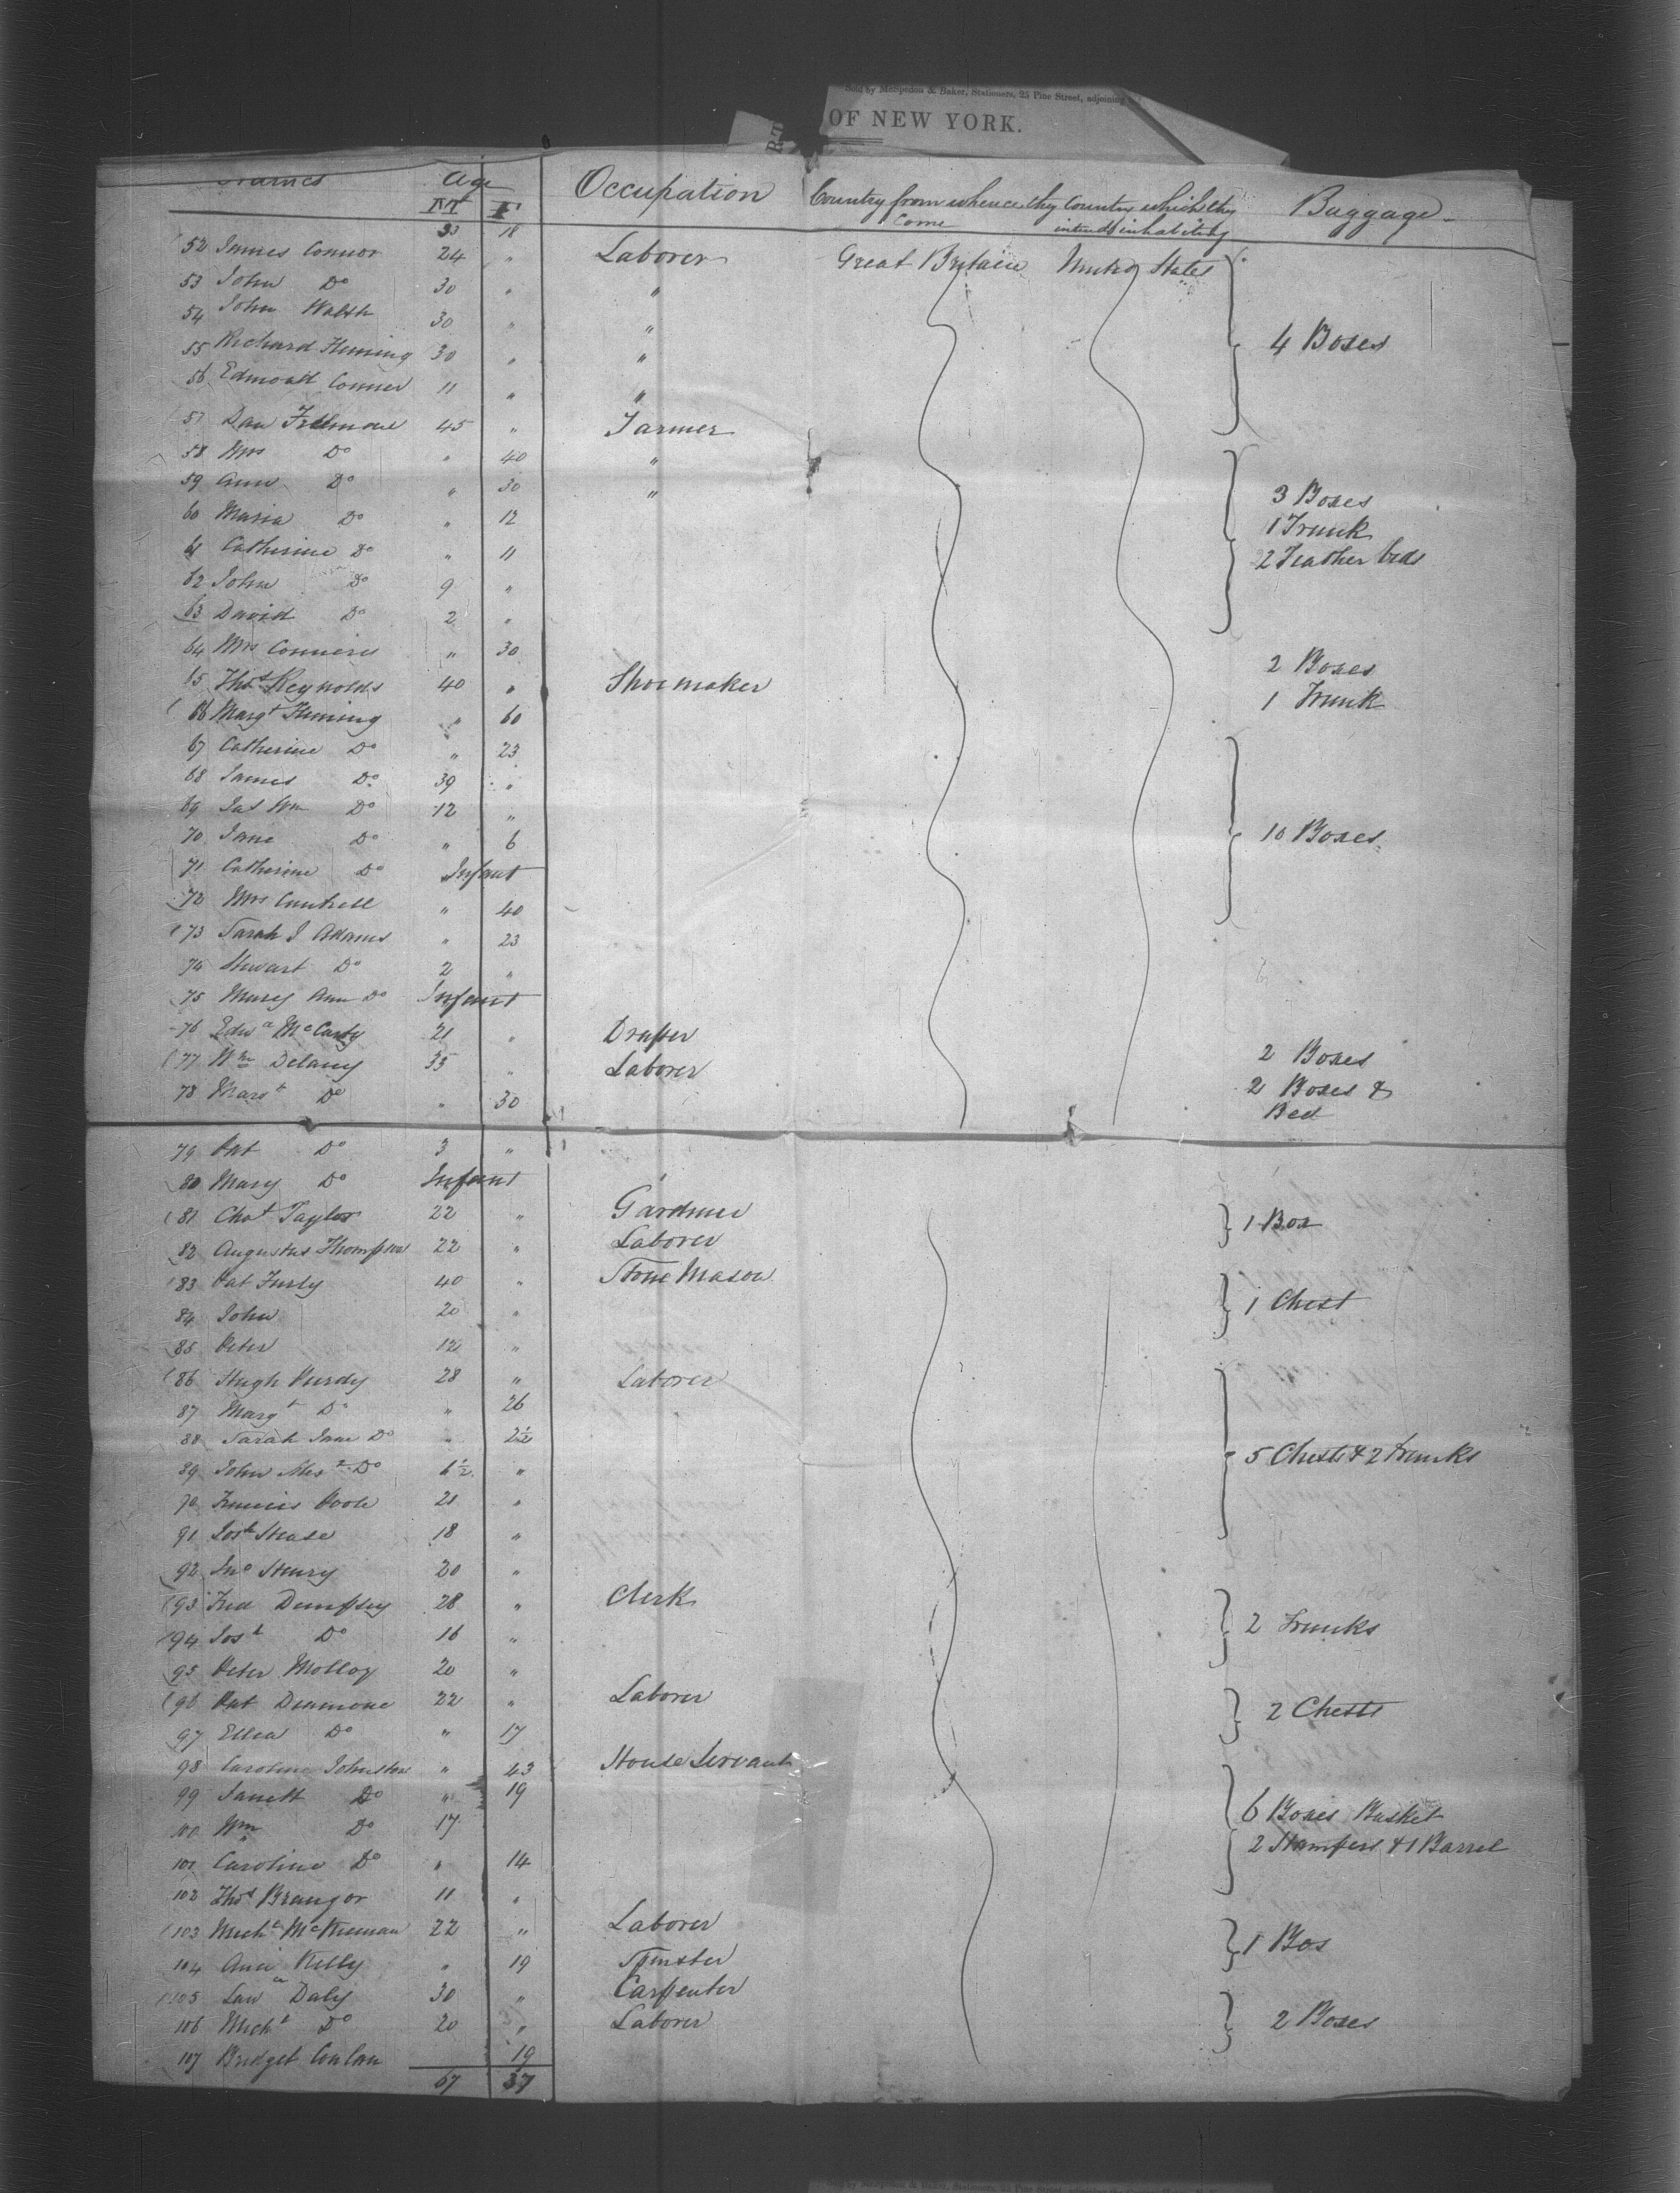 Sold by McSpedon & Baker, Stationers, 25 Pine Street, adjoining
OF NEW YORK.
Names Age Occupation Country from whence they Come Country which they intend inhabiting Baggage
M F
33 18
52 James Connor 24 " Laborer Great Britain United States
53 John Do 30 " "
54 John Walsh 30 " "
55 Richard Fleming 30 " " 4 Boxes
56 Edmond Conner 11 " "
57 Dan 45 " Farmer
58 Mrs Do " 40 "
59 Ann Do " 30 " 3 Boxes
60 Maria Do " 12 1 Trunk
61 Catherine Do " 11 2 Feather beds
62 John Do 9 "
63 David Do 2 "
64 Mrs " 30 2 Boxes
65 Thos Reynolds 40 " Shoemaker 1 Trunk
66 Margt Fleming " 60
67 Catherine Do " 23
68 James Do 39 "
69 Jas Wm Do 12 "
70 Jane Do " 6 10 Boxes
71 Catherine Do Infant
72 Mrs Cantrell " 40
73 Sarah J Adams " 23
74 Stewart Do 2 "
75 Mary Ann Do Infant
76 Edwd McCarty 21 " Draper 2 Boxes
77 Wm Delany 35 " Laborer 2 Boxes &
78 Margt Do " 30 Bed
79 Pat Do 3 "
80 Mary Do Infant
81 Chas Taylor 22 " Gardner 1 Box
82 Augustus Thompson 22 " Laborer
83 Pat Furly 40 " Stone Mason 1 Chest
84 John 20 "
85 Peter 12 "
86 Hugh Purdy 28 " Laborer
87 Margt Do " 26
88 Sarah Jane Do " 2½ 5 Chests & 2 trunks
89 John Alexr Do 6½ "
90 Francis Poole 21 "
91 Josh 18 "
92 Jno Henry 20 "
93 Fred Dempsey 28 " Clerk 2 Trunks
94 Josh Do 16 "
95 Peter Molloy 20 "
96 Pat 22 " Laborer 2 Chests
97 Ellen Do " 17
98 Caroline Johnston " 43 House Servant
99 Janett Do " 19 6 Boxes Basket
100 Wm Do 17 2 Hampers & 1 Barrel
101 Caroline Do " 14
102 Thos 11 "
103 Michl McKiernan 22 " Laborer 1 Box
104 Ann Kelly " 19 Spinster
105 Law Daly 30 " Carpenter
106 Michl Do 20 " Laborer 2 Boxes
107 Bridget Conlon 19
67 37